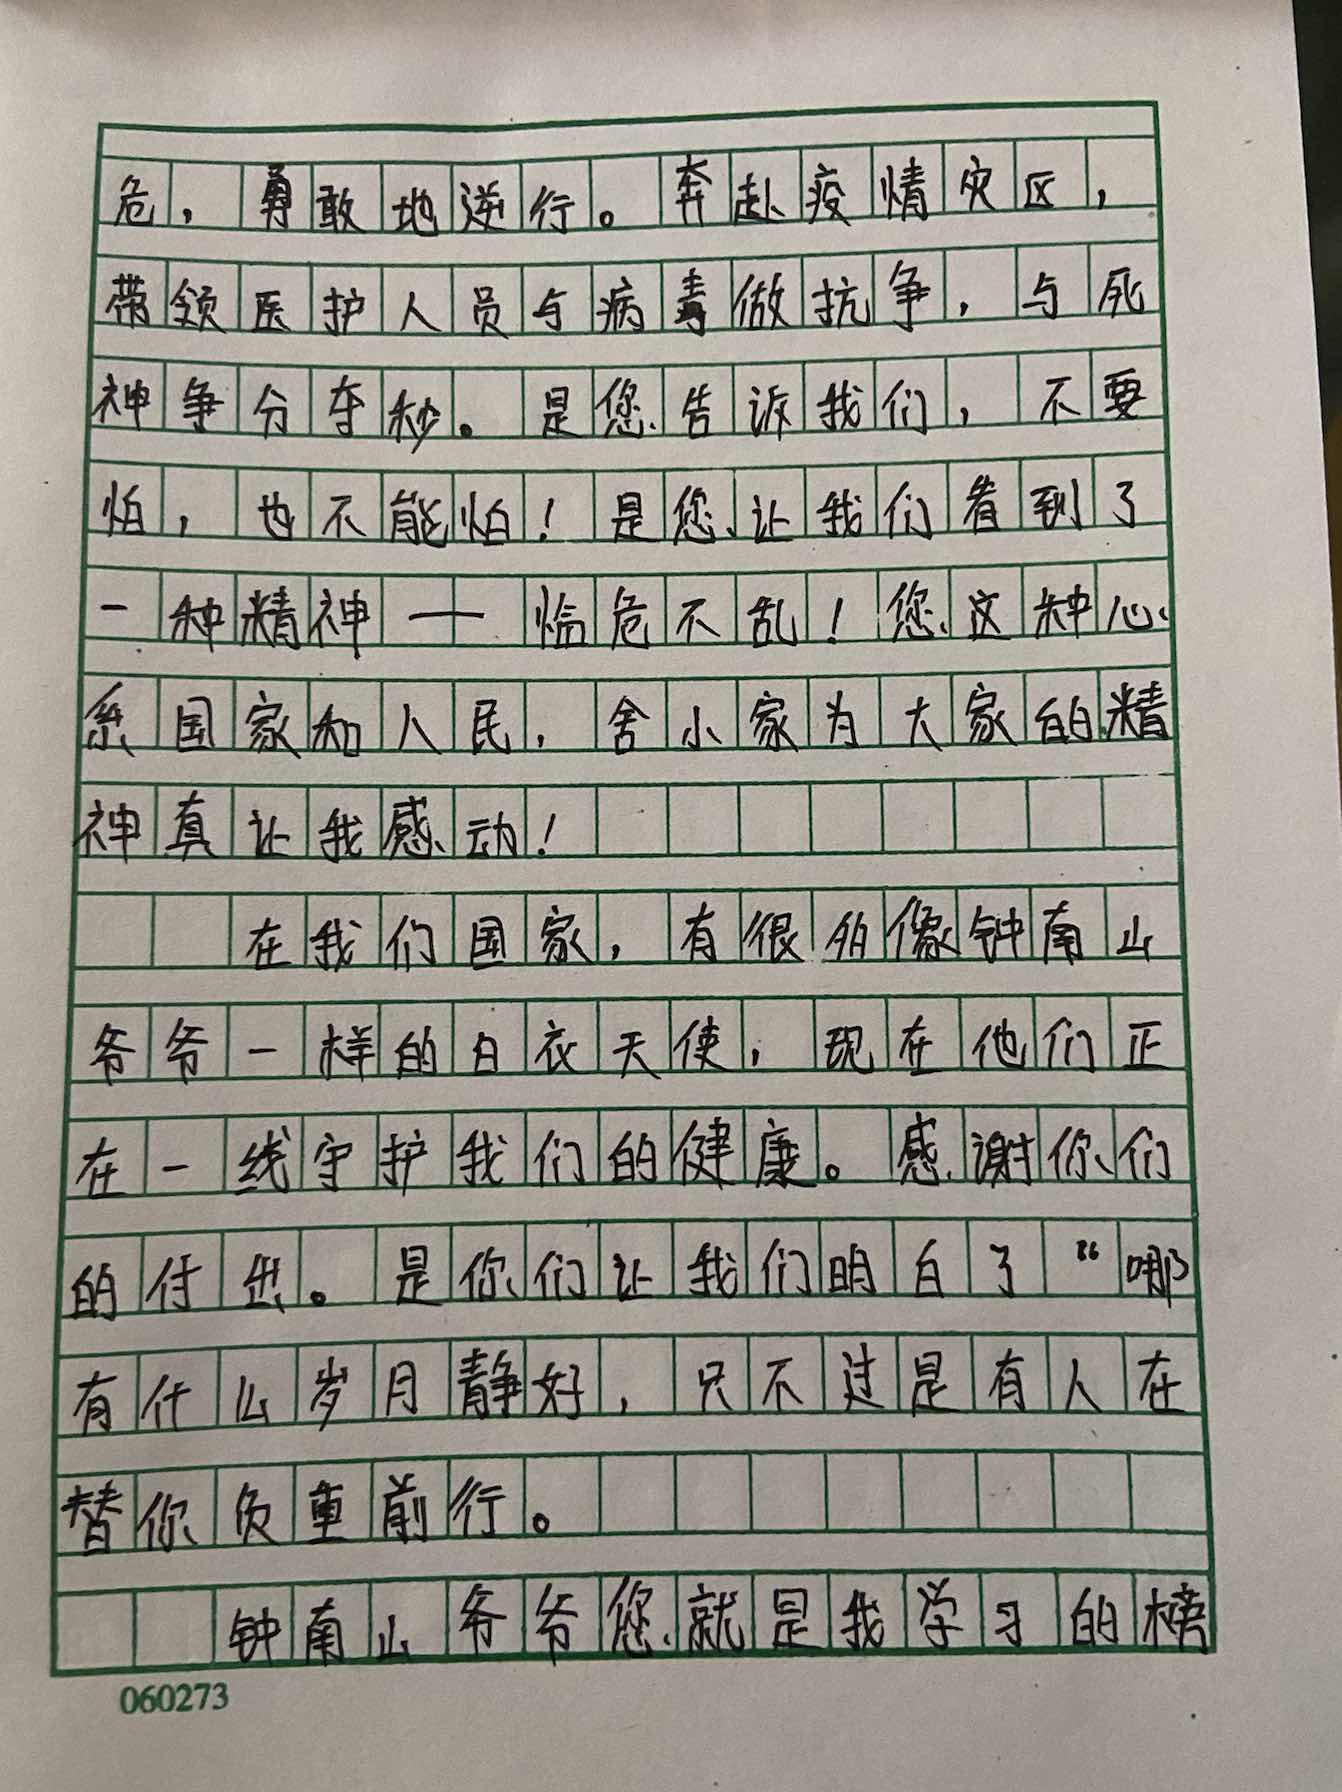 危，勇敢地逆行。奔赴疫情灾区，
带领医护人员与病毒做抗争，与死
神争分夺秒。是您告诉我们，不要
怕，也不能怕！是您让我们看到了
一种精神——临危不乱！您这种心
系国家和人民，舍小家为大家的精
神真让我感动！
在我们国家，有很多像钟南山
爷爷一样的白衣天使，现在他们正
在一线守护我们的健康。感谢你们
的付出。是你们让我们明白了“哪
有什么岁月静好，只不过是有人在
替你负重前行。
钟南山爷爷您就是我学习的榜
060273